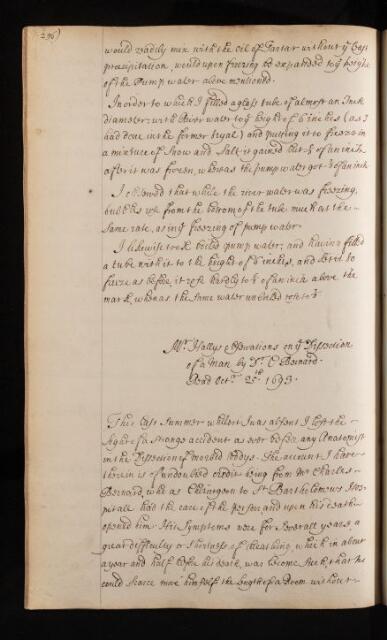 296)
would readily mix with the oil of Tartar without ye
precipitation, would upon freezing be expanded to ye heighth
of the Pump water above mentioned.
In order to which I filled a glass tube of almost an Inch
diameter, with River water to ye height of 6 inches (as I
had done in the former tryal) and putting it to freeze in
a mixture of Snow and Salt it gained but of an inch
after it was frozen, whereas the pump water got of an inch
I observed that while the river water was freezing,
bubbles rose from the bottom of the tube much at the
same rate, as in ye freezing of pump water.
I likewise took boiled pump water, and having filled
a tube with it to the height of 6 inches, and set it to
freeze as before, it rose hardly to of an inch above the
mark, whereas the same water unboiled rose to
Mr. Hallys observations on ye Dissection
of a man by Dr. C Bernard.
Read Octr. 25th. 1693.
This last Summer whilest I was absent I left the
strange accident as ever befell any Anatomist
in the Dissection of morbid bodys. The account I have
therein is of undoubted credit being from Mr Charles
Bernard, who as Chirurgeon to St Bartholomews Hos-
pitall had the care of the person, and upon his death
opened him. His Symptoms were for severall years, a
great difficulty or shortness of breathing, which in about
a year and half before his death, was become such, that he
could scarce move himself the length of a Room without